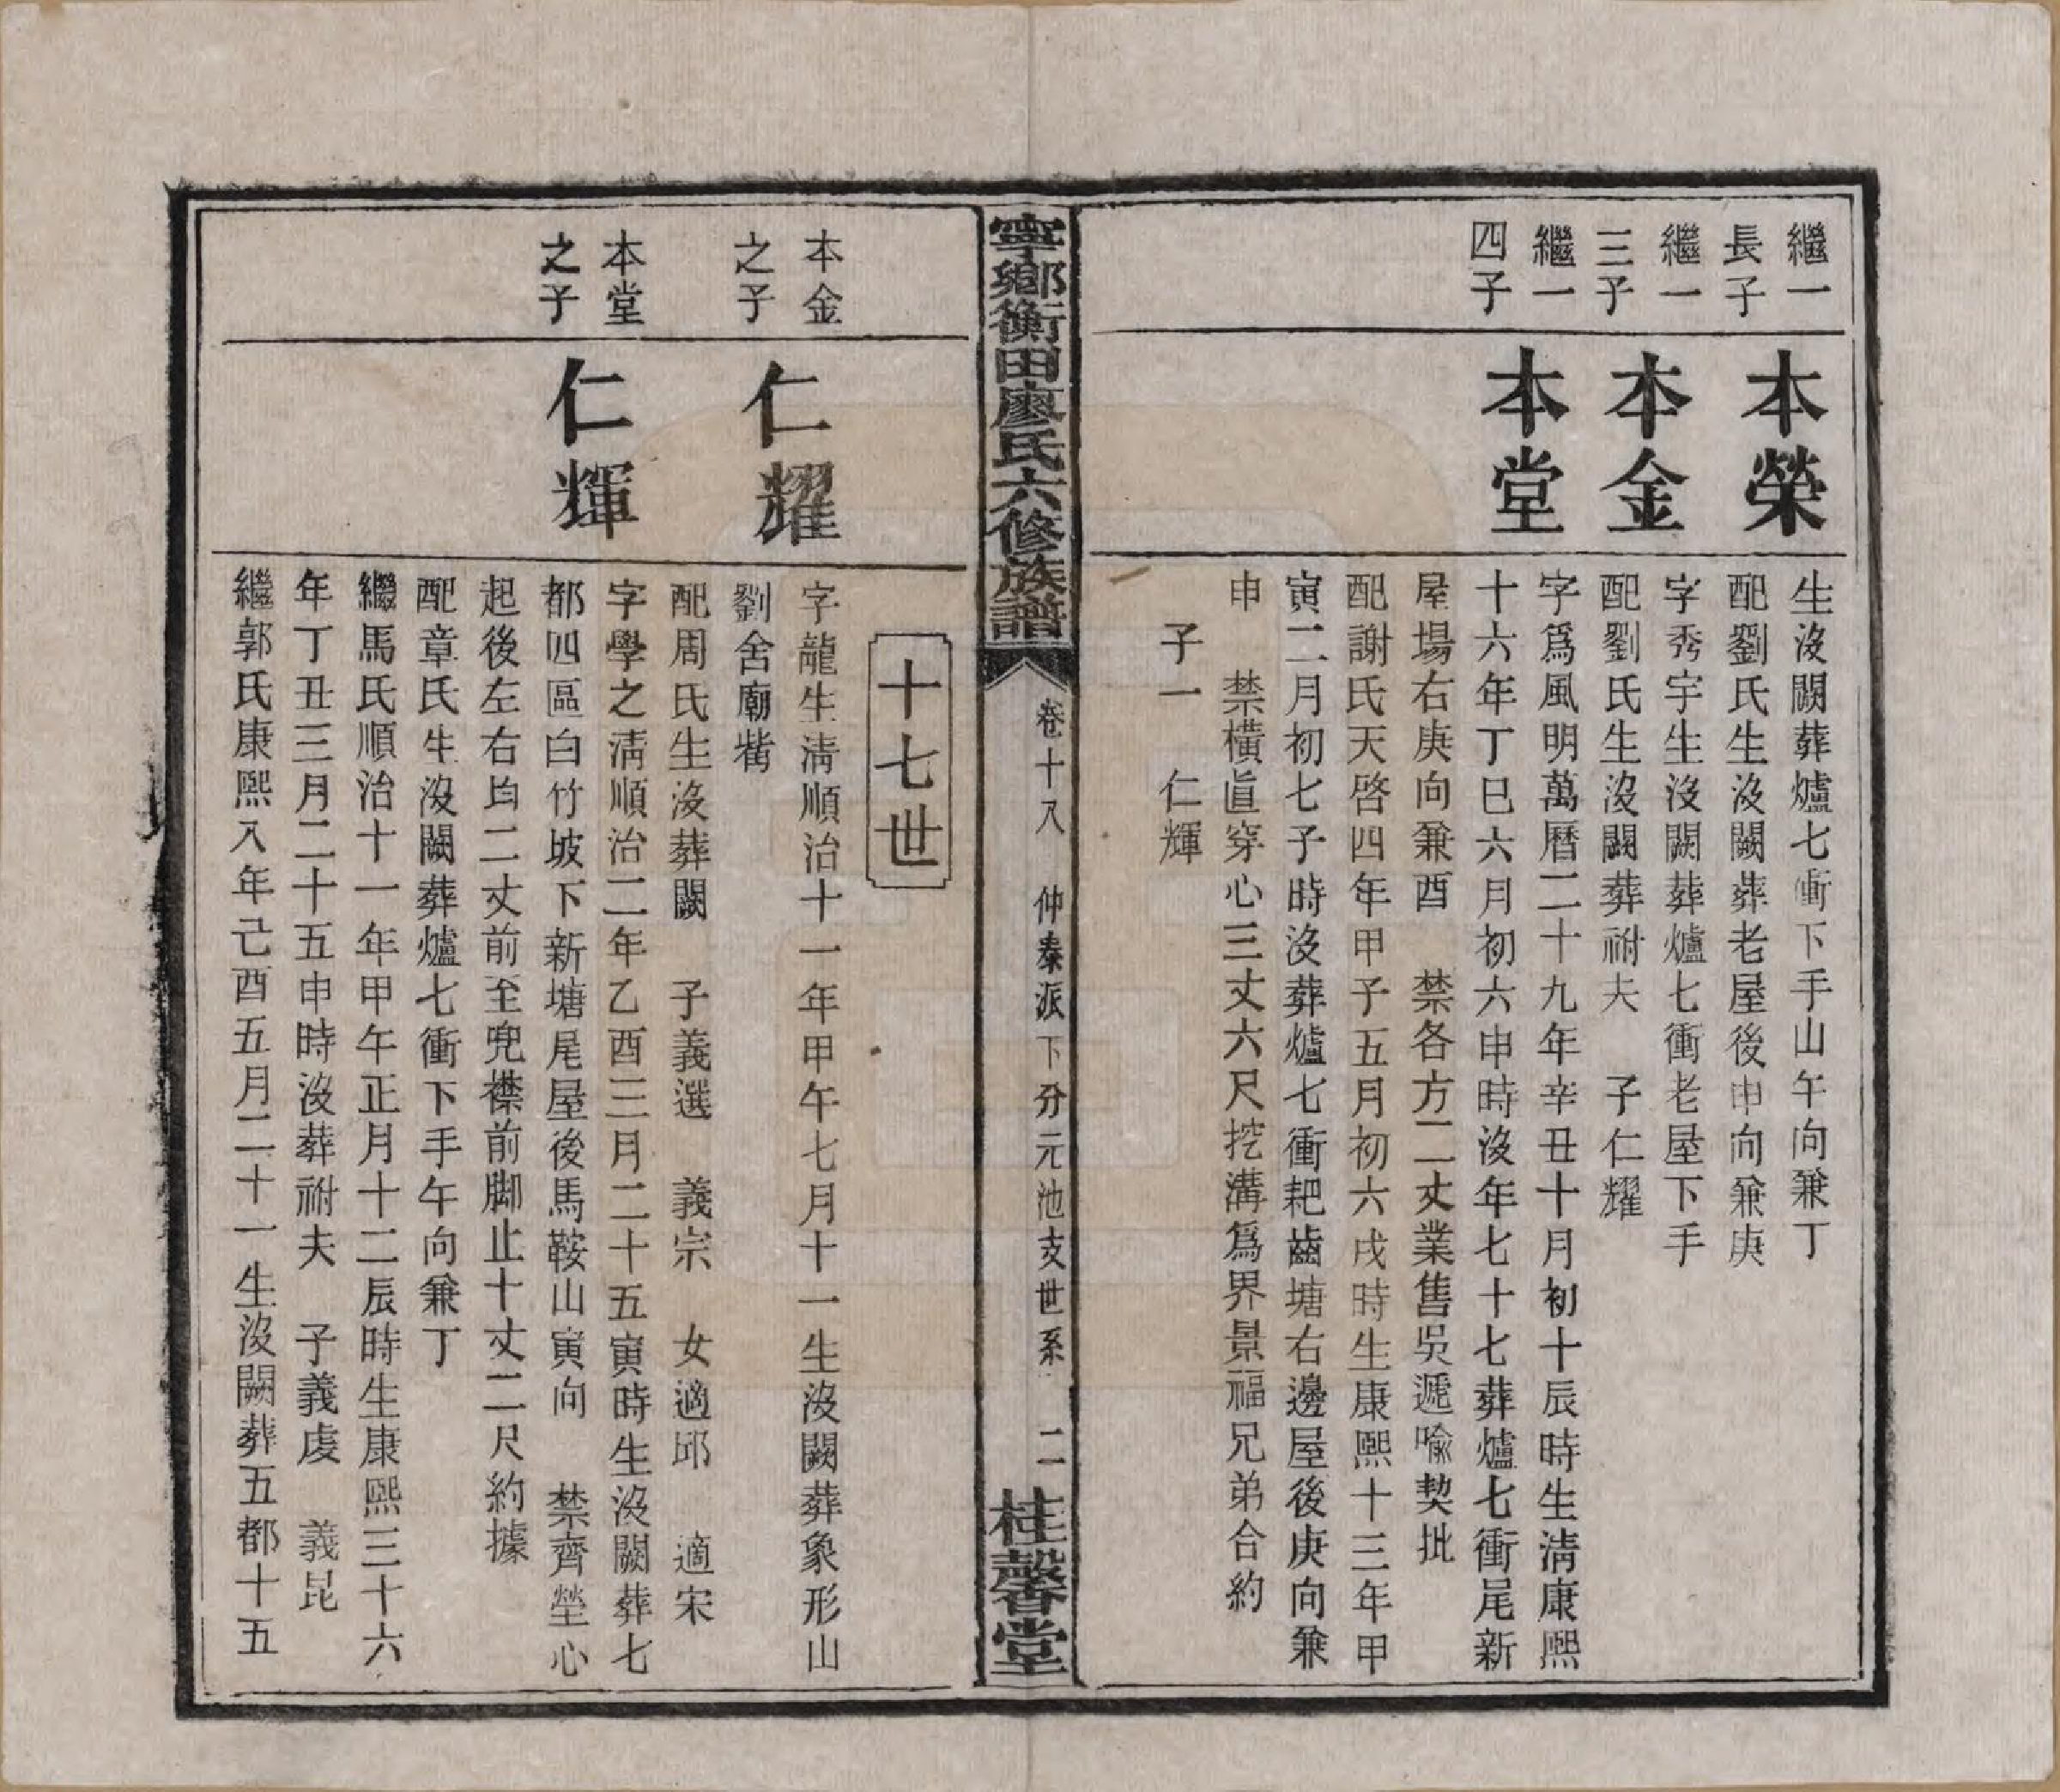 繼一
長子
本榮
生沒闕葬爐七衝下手山午向兼丁
配劉氏生沒闕葬老屋後申向兼庚
繼一
三子
本金
字秀宇生沒闕葬爐七衝老屋下手
配劉氏生沒闕葬祔夫　子仁耀
繼一
四子
本堂
字爲風明萬曆二十九年辛丑十月初十辰時生清康熙
十六年丁巳六月初六申時沒年七十七葬爐七衝尾新
屋場右庚向兼酉　禁各方二丈業售吳遞喻契批
配謝氏天啓四年甲子五月初六戌時生康熙十三年甲
寅二月初七子時沒葬爐七衝耙齒塘右邊屋後庚向兼
申　禁橫眞穿心三丈六尺挖溝爲界景福兄弟合約
子一　仁輝
寧鄉衡田廖氏六修族譜
卷十八　仲秦派下分元池支世系　二
桂馨堂
十七世
本金
之子
仁耀
字龍生清順治十一年甲午七月十一生沒闕葬象形山
劉舍廟觜
配周氏生沒葬闕　子義選　義宗　女適邱　適宋
本堂
之子
仁輝
字學之清順治二年乙酉三月二十五寅時生沒闕葬七
都四區白竹坡下新塘尾屋後馬鞍山寅向　禁齊塋心
起後左右均二丈前至兜襟前脚止十丈二尺約據
配章氏生沒闕葬爐七衝下手午向兼丁
繼馬氏順治十一年甲午正月十二辰時生康熙三十六
年丁丑三月二十五申時沒葬祔夫　子義虔　義昆
繼郭氏康熙八年己酉五月二十一生沒闕葬五都十五